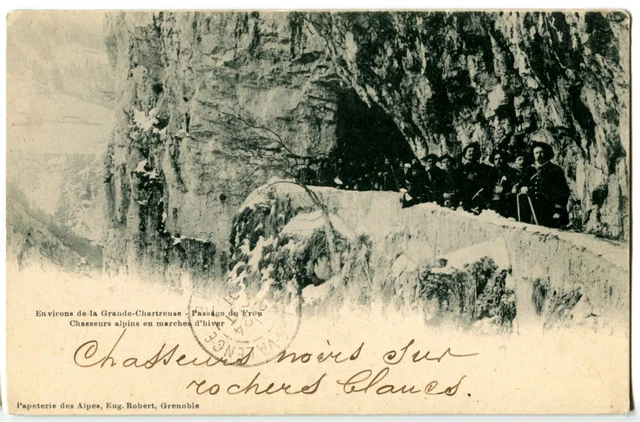 Environs de la Grande-Chartreuse - Passage du Frou
Chasseurs alpins en marches d'hiver
VALENCE
Chasseurs noirs sur
rochers blancs.
Papeterie des Alpes, Eug. Robert, Grenoble